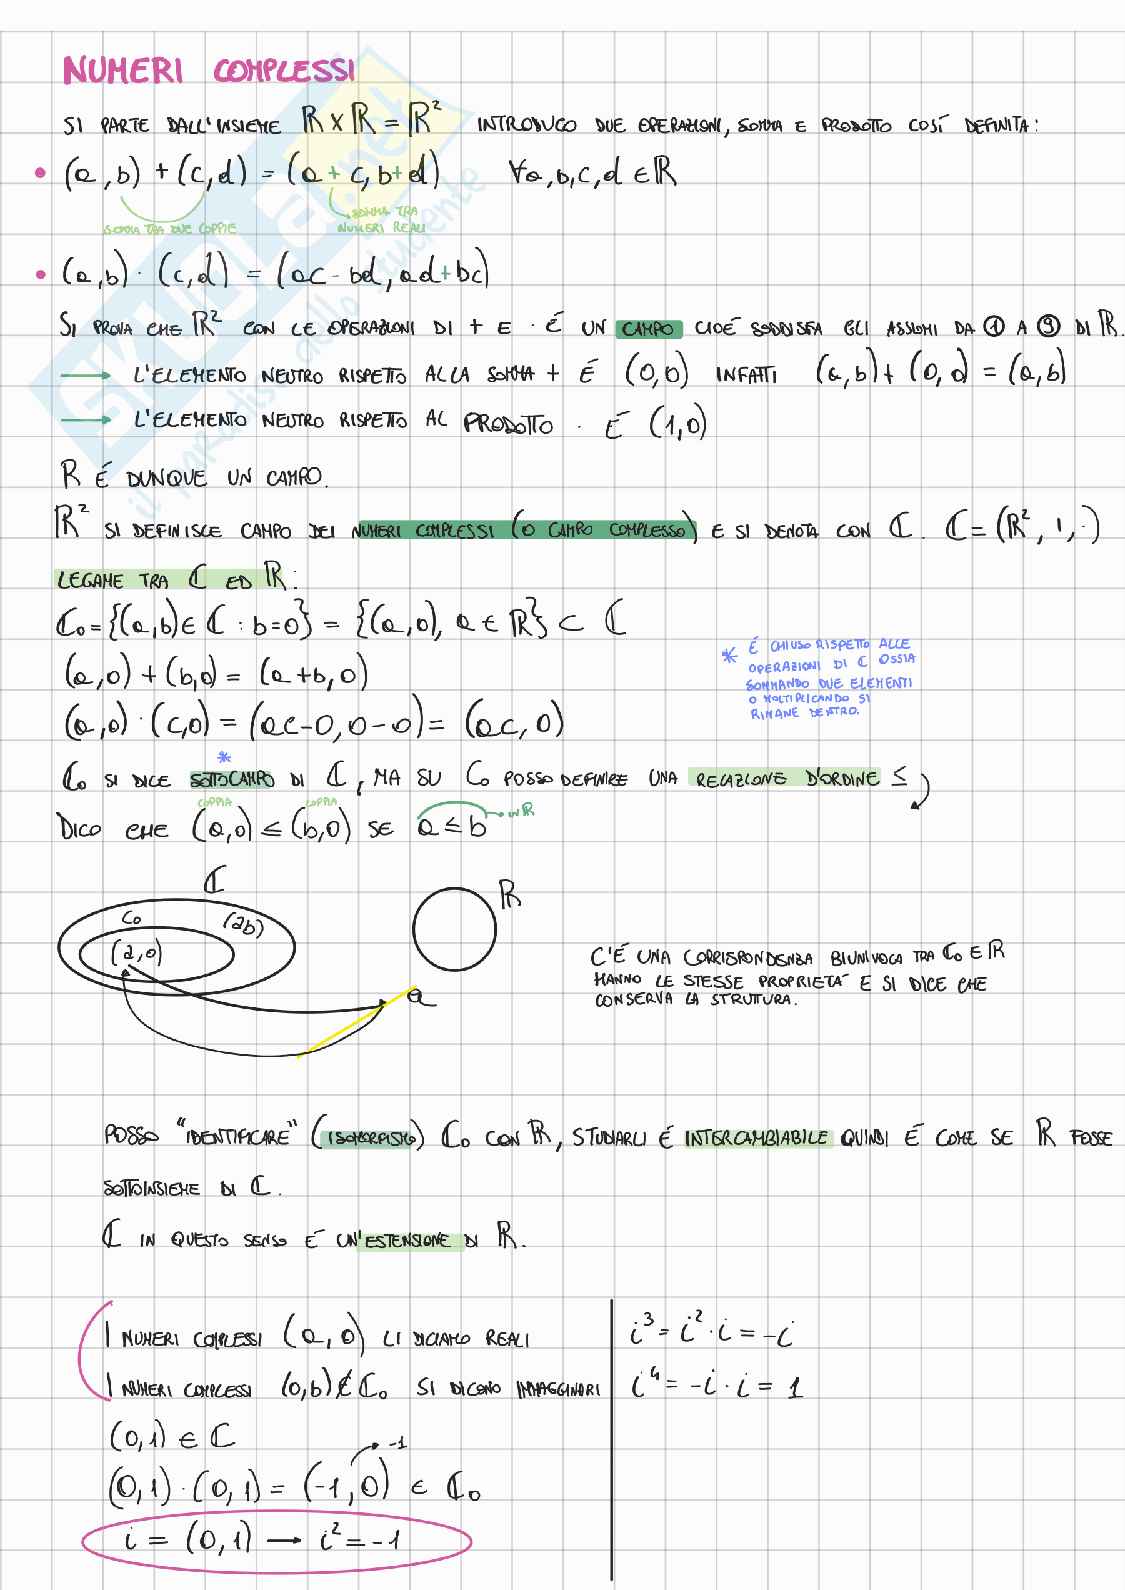 NUMERI COMPLESSI
SI PARTE DALL'INSIEME ℝ×ℝ=ℝ² INTRODUCO DUE OPERAZIONI, SOMMA E PRODOTTO COSÍ DEFINITA:
• (a,b)+(c,d)=(a+c,b+d) ∀a,b,c,d∈ℝ
SOMMA TRA DUE COPPIE
SOMMA TRA
NUMERI REALI
• (a,b)·(c,d)=(ac-bd,ad+bc)
SI PROVA CHE ℝ² CON LE OPERAZIONI DI + E · É UN CAMPO CIOÉ SODDISFA GLI ASSIOMI DA ① A ⑨ DI ℝ.
→ L'ELEMENTO NEUTRO RISPETTO ALLA SOMMA + É (0,0) INFATTI (a,b)+(0,0)=(a,b)
→ L'ELEMENTO NEUTRO RISPETTO AL PRODOTTO · É (1,0)
ℝ É DUNQUE UN CAMPO.
ℝ² SI DEFINISCE CAMPO DEI NUMERI COMPLESSI (O CAMPO COMPLESSO) E SI DENOTA CON ℂ. ℂ=(ℝ²,1,·)
LEGAME TRA ℂ ED ℝ:
ℂ₀={(a,b)∈ℂ:b=0}={(a,0),a∈ℝ}⊂ℂ
(a,0)+(b,0)=(a+b,0)
(a,0)·(c,0)=(ac-0,0-0)=(ac,0)
* É CHIUSO RISPETTO ALLE
OPERAZIONI DI ℂ OSSIA
SOMMANDO DUE ELEMENTI
O MOLTIPLICANDO SI
RIMANE DENTRO.
*
ℂ₀ SI DICE SOTTOCAMPO DI ℂ, MA SU ℂ₀ POSSO DEFINIRE UNA RELAZIONE D'ORDINE ≤
COPPIA COPPIA
DICO CHE (a,0)≤(b,0) SE a≤b → IN ℝ
ℂ
ℝ
ℂ₀ (ab)
(a,0)
a
C'É UNA CORRISPONDENZA BIUNIVOCA TRA ℂ₀ E ℝ
HANNO LE STESSE PROPRIETÁ E SI DICE CHE
CONSERVA LA STRUTTURA.
POSSO "IDENTIFICARE" (ISOMORFISMO) ℂ₀ CON ℝ, STUDIARLI É INTERCAMBIABILE QUINDI É COME SE ℝ FOSSE
SOTTOINSIEME DI ℂ.
ℂ IN QUESTO SENSO É UN'ESTENSIONE DI ℝ.
I NUMERI COMPLESSI (a,0) LI DICIAMO REALI
I NUMERI COMPLESSI (0,b)∉ℂ₀ SI DICONO IMMAGGINARI
(0,1)∈ℂ
→ -1
(0,1)·(0,1)=(-1,0)∈ℂ₀
i=(0,1)→i²=-1
i³=i²·i=-i
i⁴=-i·i=1
SKUOLA.net
il paradiso dello studente